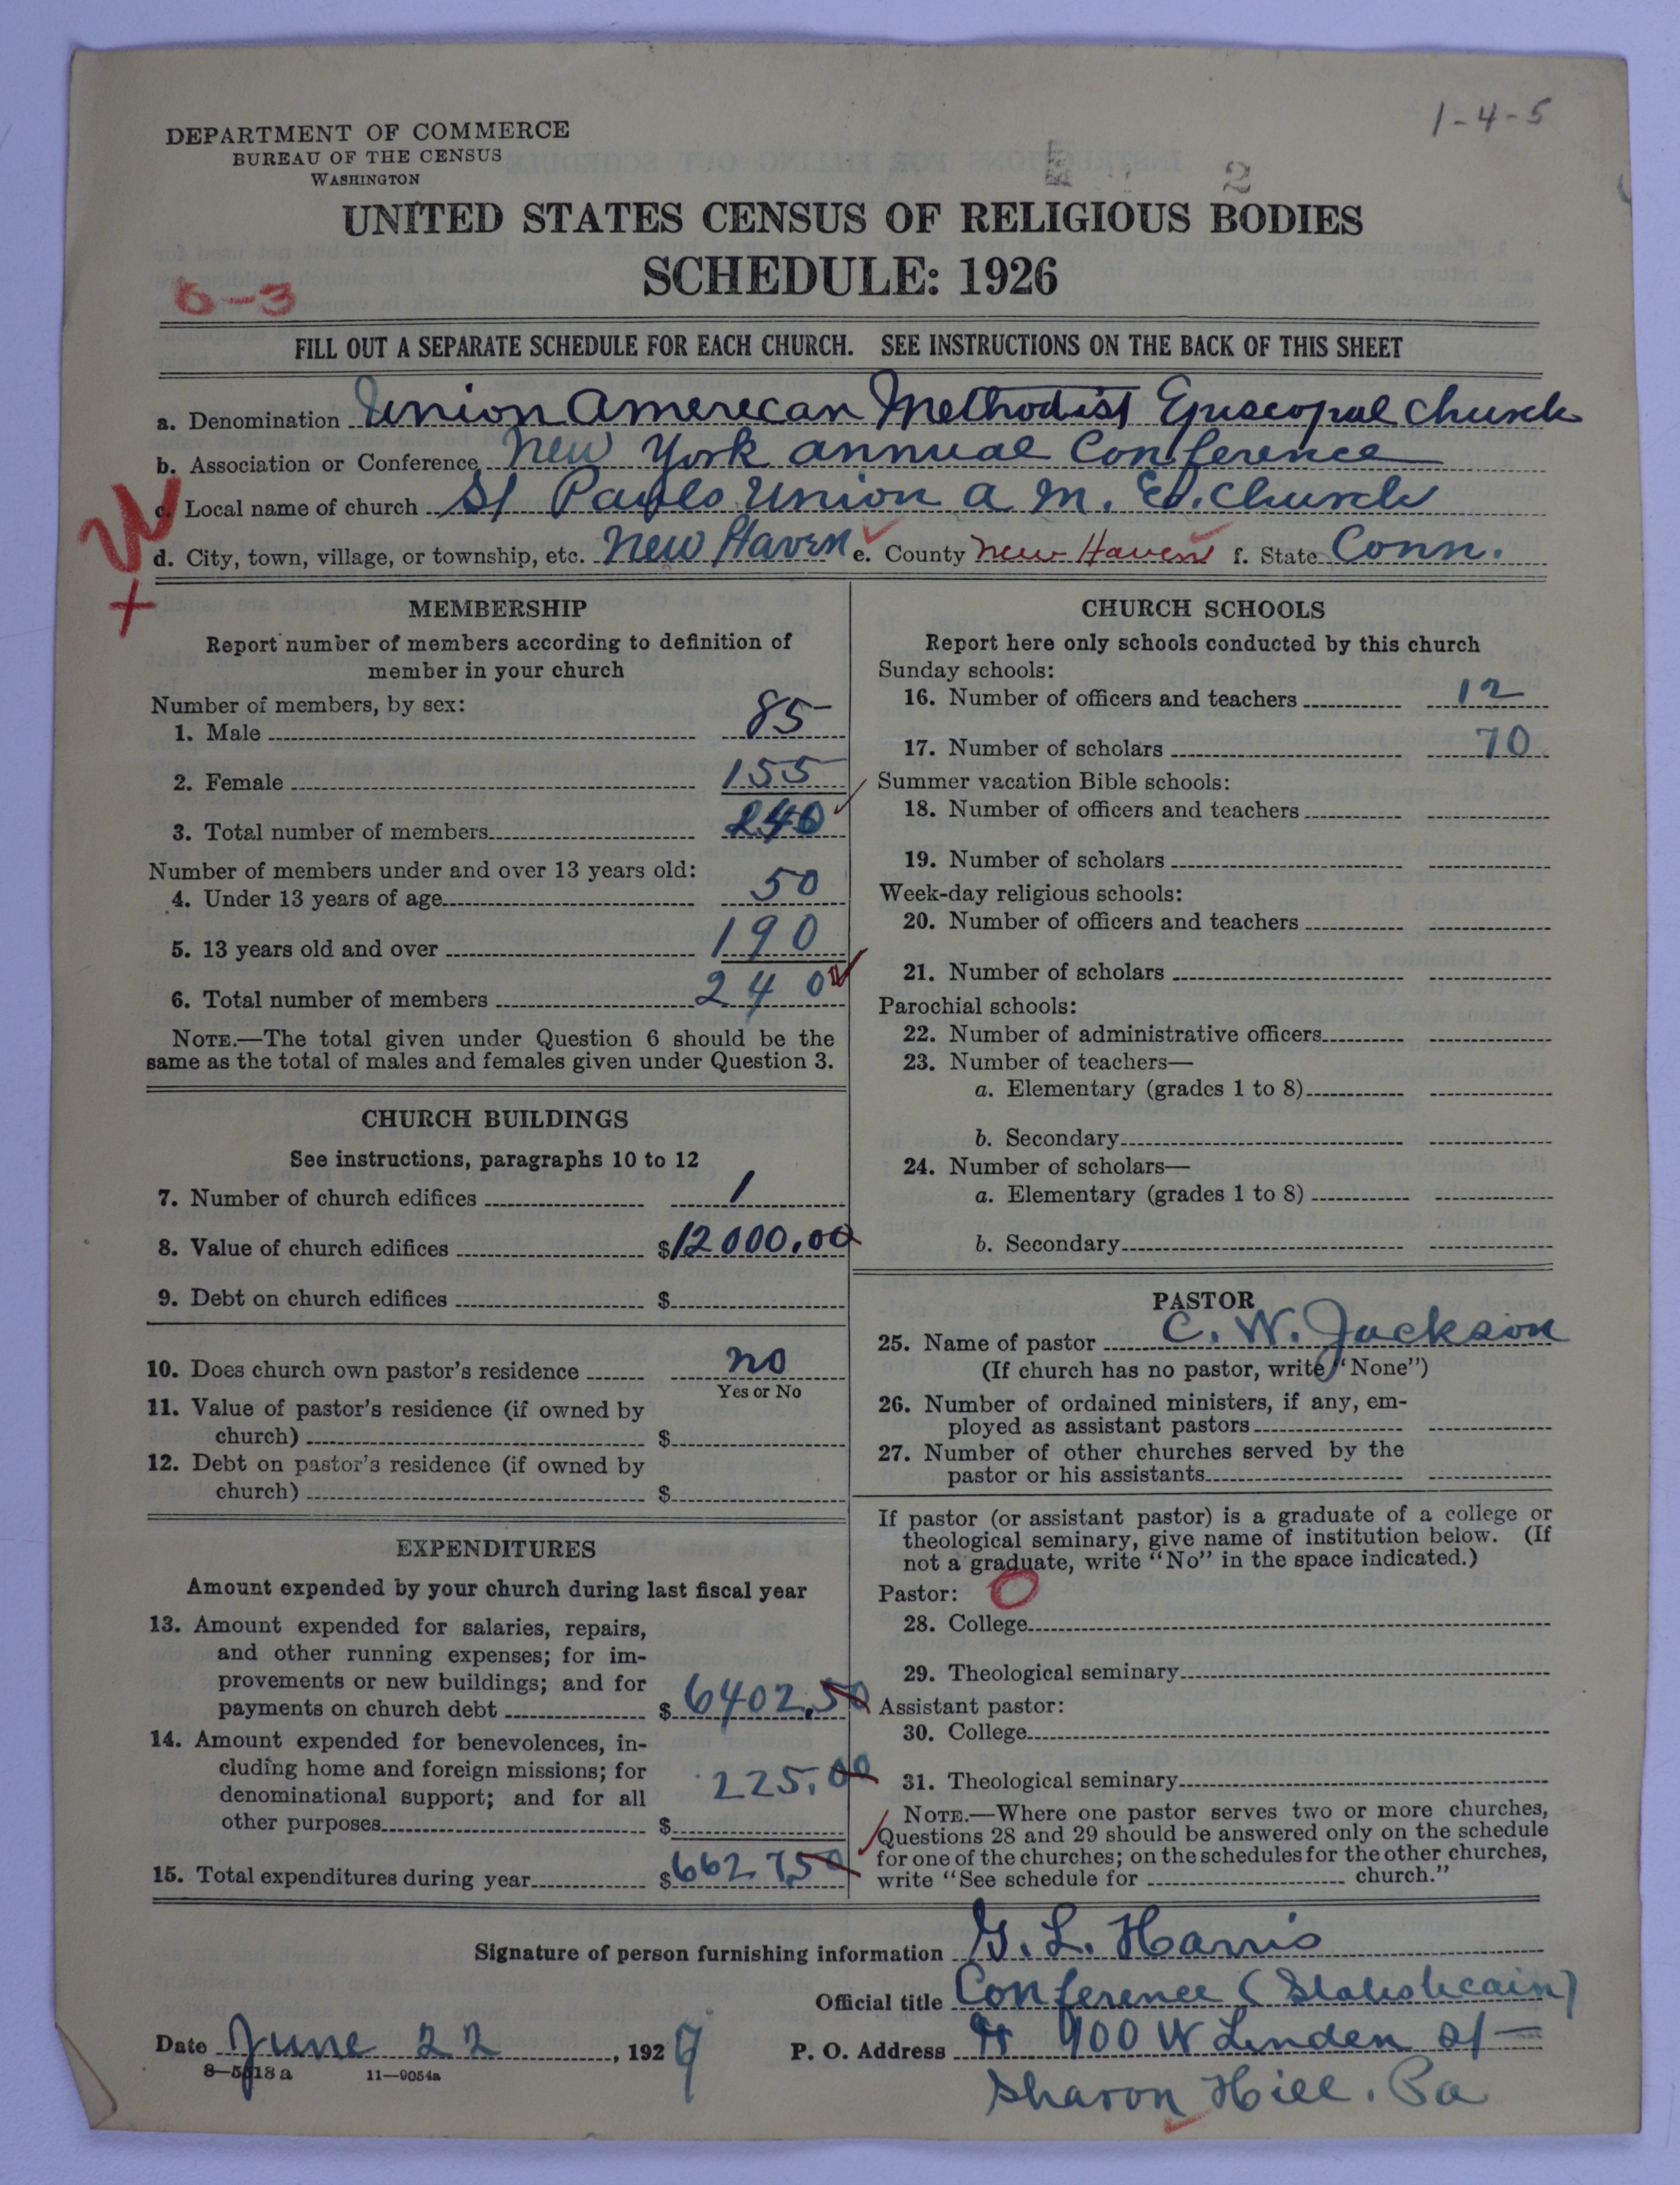 1-4-5
DEPARTMENT OF COMMERCE
BUREAU OF THE CENSUS
WASHINGTON
2
UNITED STATES CENSUS OF RELIGIOUS BODIES
SCHEDULE: 1926
6-3
FILL OUT A SEPARATE SCHEDULE FOR EACH CHURCH. SEE INSTRUCTIONS ON THE BACK OF THIS SHEET
a. Denomination Union Amerecan Methodist Episcopal Church
b. Association or Conference New York annual Conference
c. Local name of church St Pauls Union a M. E. Church
d. City, town, village, or township, etc. New Haven e. County New Haven f. State Conn.
MEMBERSHIP
Report number of members according to definition of
member in your church
Number of members, by sex:
1. Male 85
2. Female 155
3. Total number of members 240
Number of members under and over 13 years old:
4. Under 13 years of age 50
5. 13 years old and over 190
6. Total number of members 240
NOTE.—The total given under Question 6 should be the
same as the total of males and females given under Question 3.
CHURCH BUILDINGS
See instructions, paragraphs 10 to 12
7. Number of church edifices 1
8. Value of church edifices $12000.00
9. Debt on church edifices $
10. Does church own pastor's residence no
Yes or No
11. Value of pastor's residence (if owned by
church) $
12. Debt on pastor's residence (if owned by
church) $
EXPENDITURES
Amount expended by your church during last fiscal year
13. Amount expended for salaries, repairs,
and other running expenses; for im-
provements or new buildings; and for
payments on church debt $ 6402.50
14. Amount expended for benevolences, in-
cluding home and foreign missions; for
denominational support; and for all
other purposes $ 225.00
15. Total expenditures during year $6627.50
CHURCH SCHOOLS
Report here only schools conducted by this church
Sunday schools:
16. Number of officers and teachers 12
17. Number of scholars 70
Summer vacation Bible schools:
18. Number of officers and teachers
19. Number of scholars
Week-day religious schools:
20. Number of officers and teachers
21. Number of scholars
Parochial schools:
22. Number of administrative officers
23. Number of teachers—
a. Elementary (grades 1 to 8)
b. Secondary
24. Number of scholars—
a. Elementary (grades 1 to 8)
b. Secondary
PASTOR
25. Name of pastor C. W. Jackson
(If church has no pastor, write "None")
26. Number of ordained ministers, if any, em-
ployed as assistant pastors
27. Number of other churches served by the
pastor or his assistants
If pastor (or assistant pastor) is a graduate of a college or
theological seminary, give name of institution below. (If
not a graduate, write "No" in the space indicated.)
Pastor: 0
28. College
29. Theological seminary
Assistant pastor:
30. College
31. Theological seminary
NOTE.—Where one pastor serves two or more churches,
Questions 28 and 29 should be answered only on the schedule
for one of the churches; on the schedules for the other churches,
write "See schedule for church."
Signature of person furnishing information G. L. Harris
Official title Conference (
Date June 22, 1927
P. O. Address 900 W Linden St
Sharon Hill. Pa
8—5518a 11—9054a